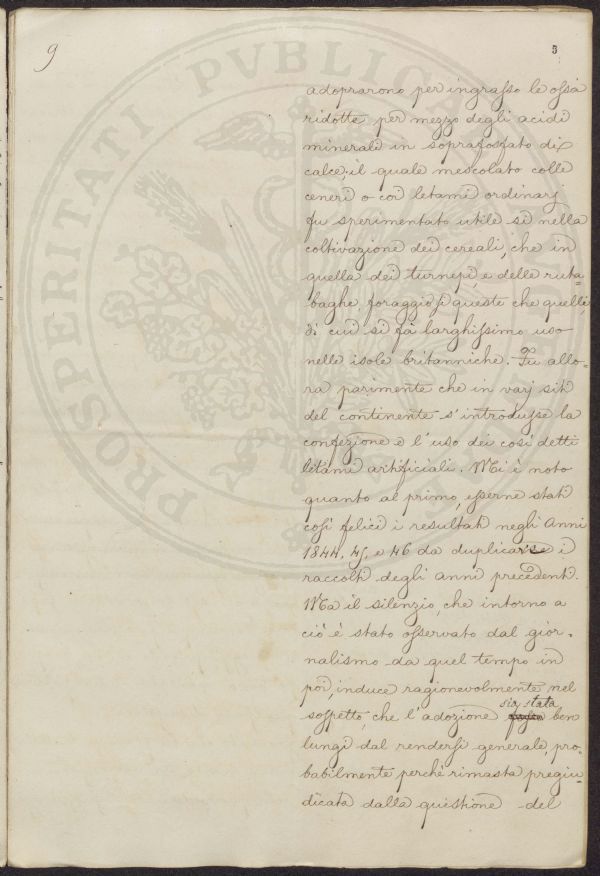 9
5
PROSPERITATI PUBLICAE
adoprarono per ingrasso le ossa
ridotte per mezzo degli acidi
minerali in soprafosfato di
calce; il quale mescolato colle
ceneri o coi letami ordinarj
fu sperimentato utile sì nella
coltivazione dei cereali, che in
quella dei turnepi, e delle ruta-
baghe, foraggio sì queste che quelli,
di cui si fà larghissimo uso
nelle isole britanniche. Fu allo-
ra parimente che in varj siti
del continente s'introdusse la
confezione e l'uso dei così detti
letami artificiali. Mi è noto
quanto al primo, esserne stati
così felici i resultati negli Anni
1844, 45, e 46 da duplicarse i
raccolti degli anni precedenti.
Ma il silenzio, che intorno a
ciò è stato osservato dal gior-
nalismo da quel tempo in
poi, induce ragionevolmente nel
sospetto, che l'adozione sia stata ben
lungi dal rendersi generale, pro-
babilmente perchè rimasta pregiu-
dicata dalla questione del